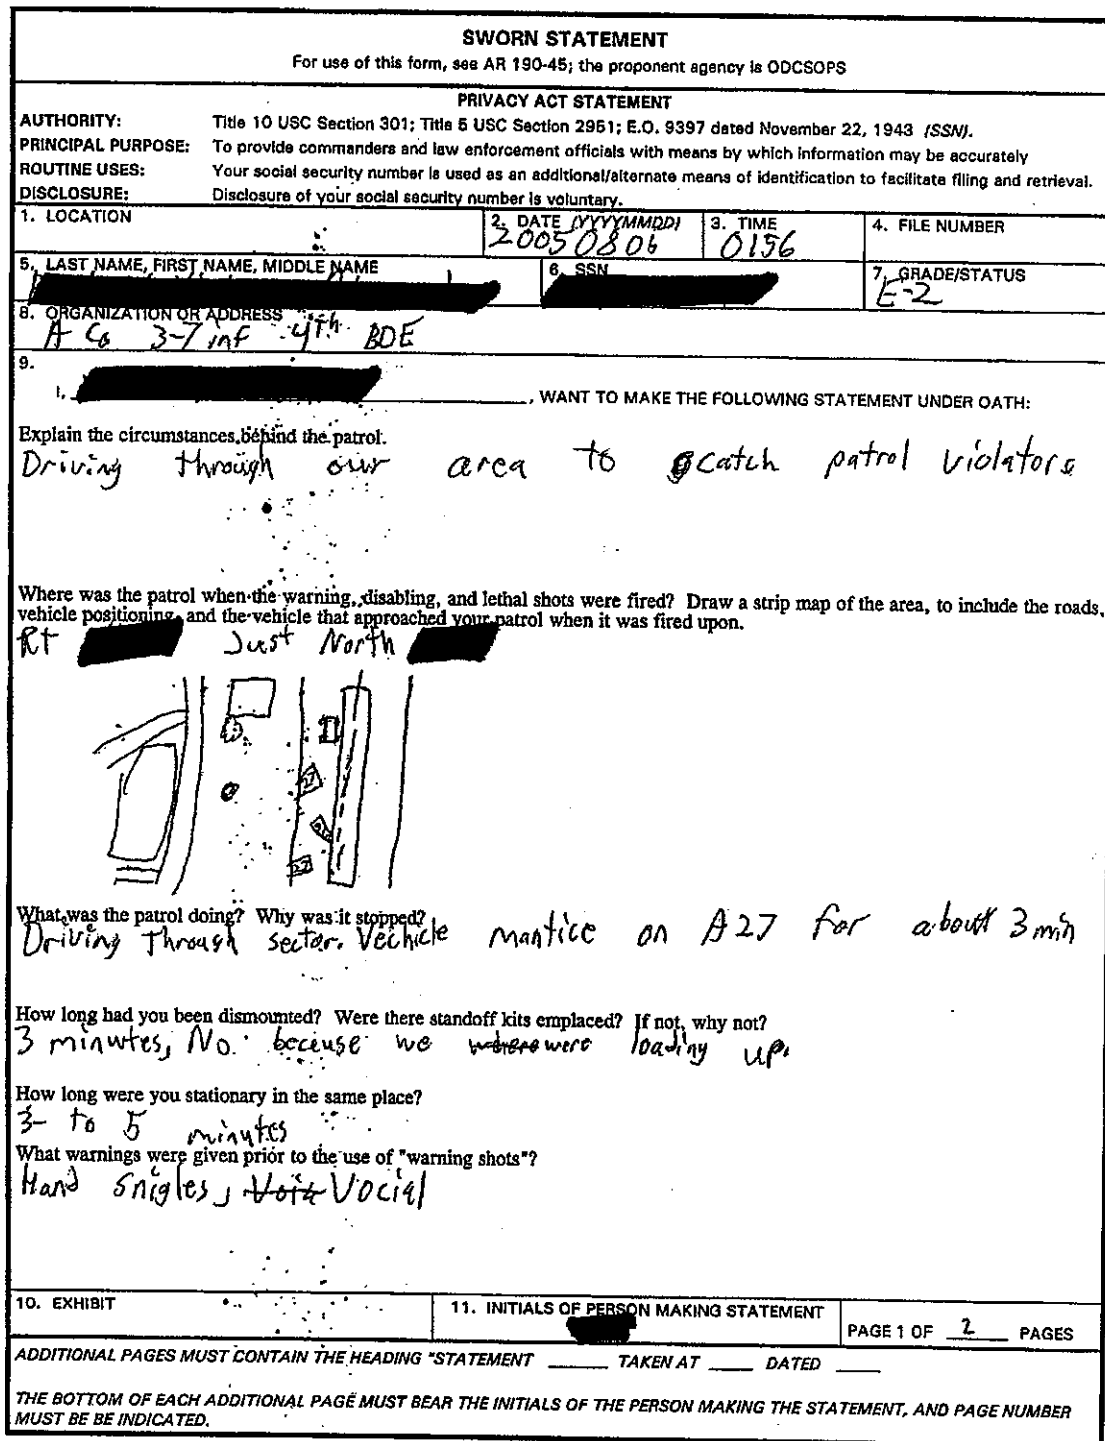 SWORN STATEMENT
For use of this form, see AR 190-45; the proponent agency is ODCSOPS
PRIVACY ACT STATEMENT
AUTHORITY: Title 10 USC Section 301; Title 5 USC Section 2951; E.O. 9397 dated November 22, 1943 (SSN).
PRINCIPAL PURPOSE: To provide commanders and law enforcement officials with means by which information may be accurately
ROUTINE USES: Your social security number is used as an additional/alternate means of identification to facilitate filing and retrieval.
DISCLOSURE: Disclosure of your social security number is voluntary.
1. LOCATION 2. DATE (YYYYMMDD) 3. TIME 4. FILE NUMBER
20050806 0156
5. LAST NAME, FIRST NAME, MIDDLE NAME 6. SSN 7. GRADE/STATUS
E-2
8. ORGANIZATION OR ADDRESS
A Co 3-7 inf 4th BDE
9.
I, , WANT TO MAKE THE FOLLOWING STATEMENT UNDER OATH:
Explain the circumstances behind the patrol.
Driving through our area to catch patrol violators
Where was the patrol when the warning, disabling, and lethal shots were fired? Draw a strip map of the area, to include the roads,
vehicle positioning, and the vehicle that approached your patrol when it was fired upon.
Rt Just North
27
27
What was the patrol doing? Why was it stopped?
Driving Through sector. Vechicle mantice on A27 for about 3 min
How long had you been dismounted? Were there standoff kits emplaced? If not, why not?
3 minutes, No. beceuse we were loading up.
How long were you stationary in the same place?
3- to 5 minutes
What warnings were given prior to the use of "warning shots"?
Hand snigles, Vocial
10. EXHIBIT 11. INITIALS OF PERSON MAKING STATEMENT PAGE 1 OF 2 PAGES
ADDITIONAL PAGES MUST CONTAIN THE HEADING "STATEMENT ____ TAKEN AT ____ DATED ____
THE BOTTOM OF EACH ADDITIONAL PAGE MUST BEAR THE INITIALS OF THE PERSON MAKING THE STATEMENT, AND PAGE NUMBER
MUST BE BE INDICATED.